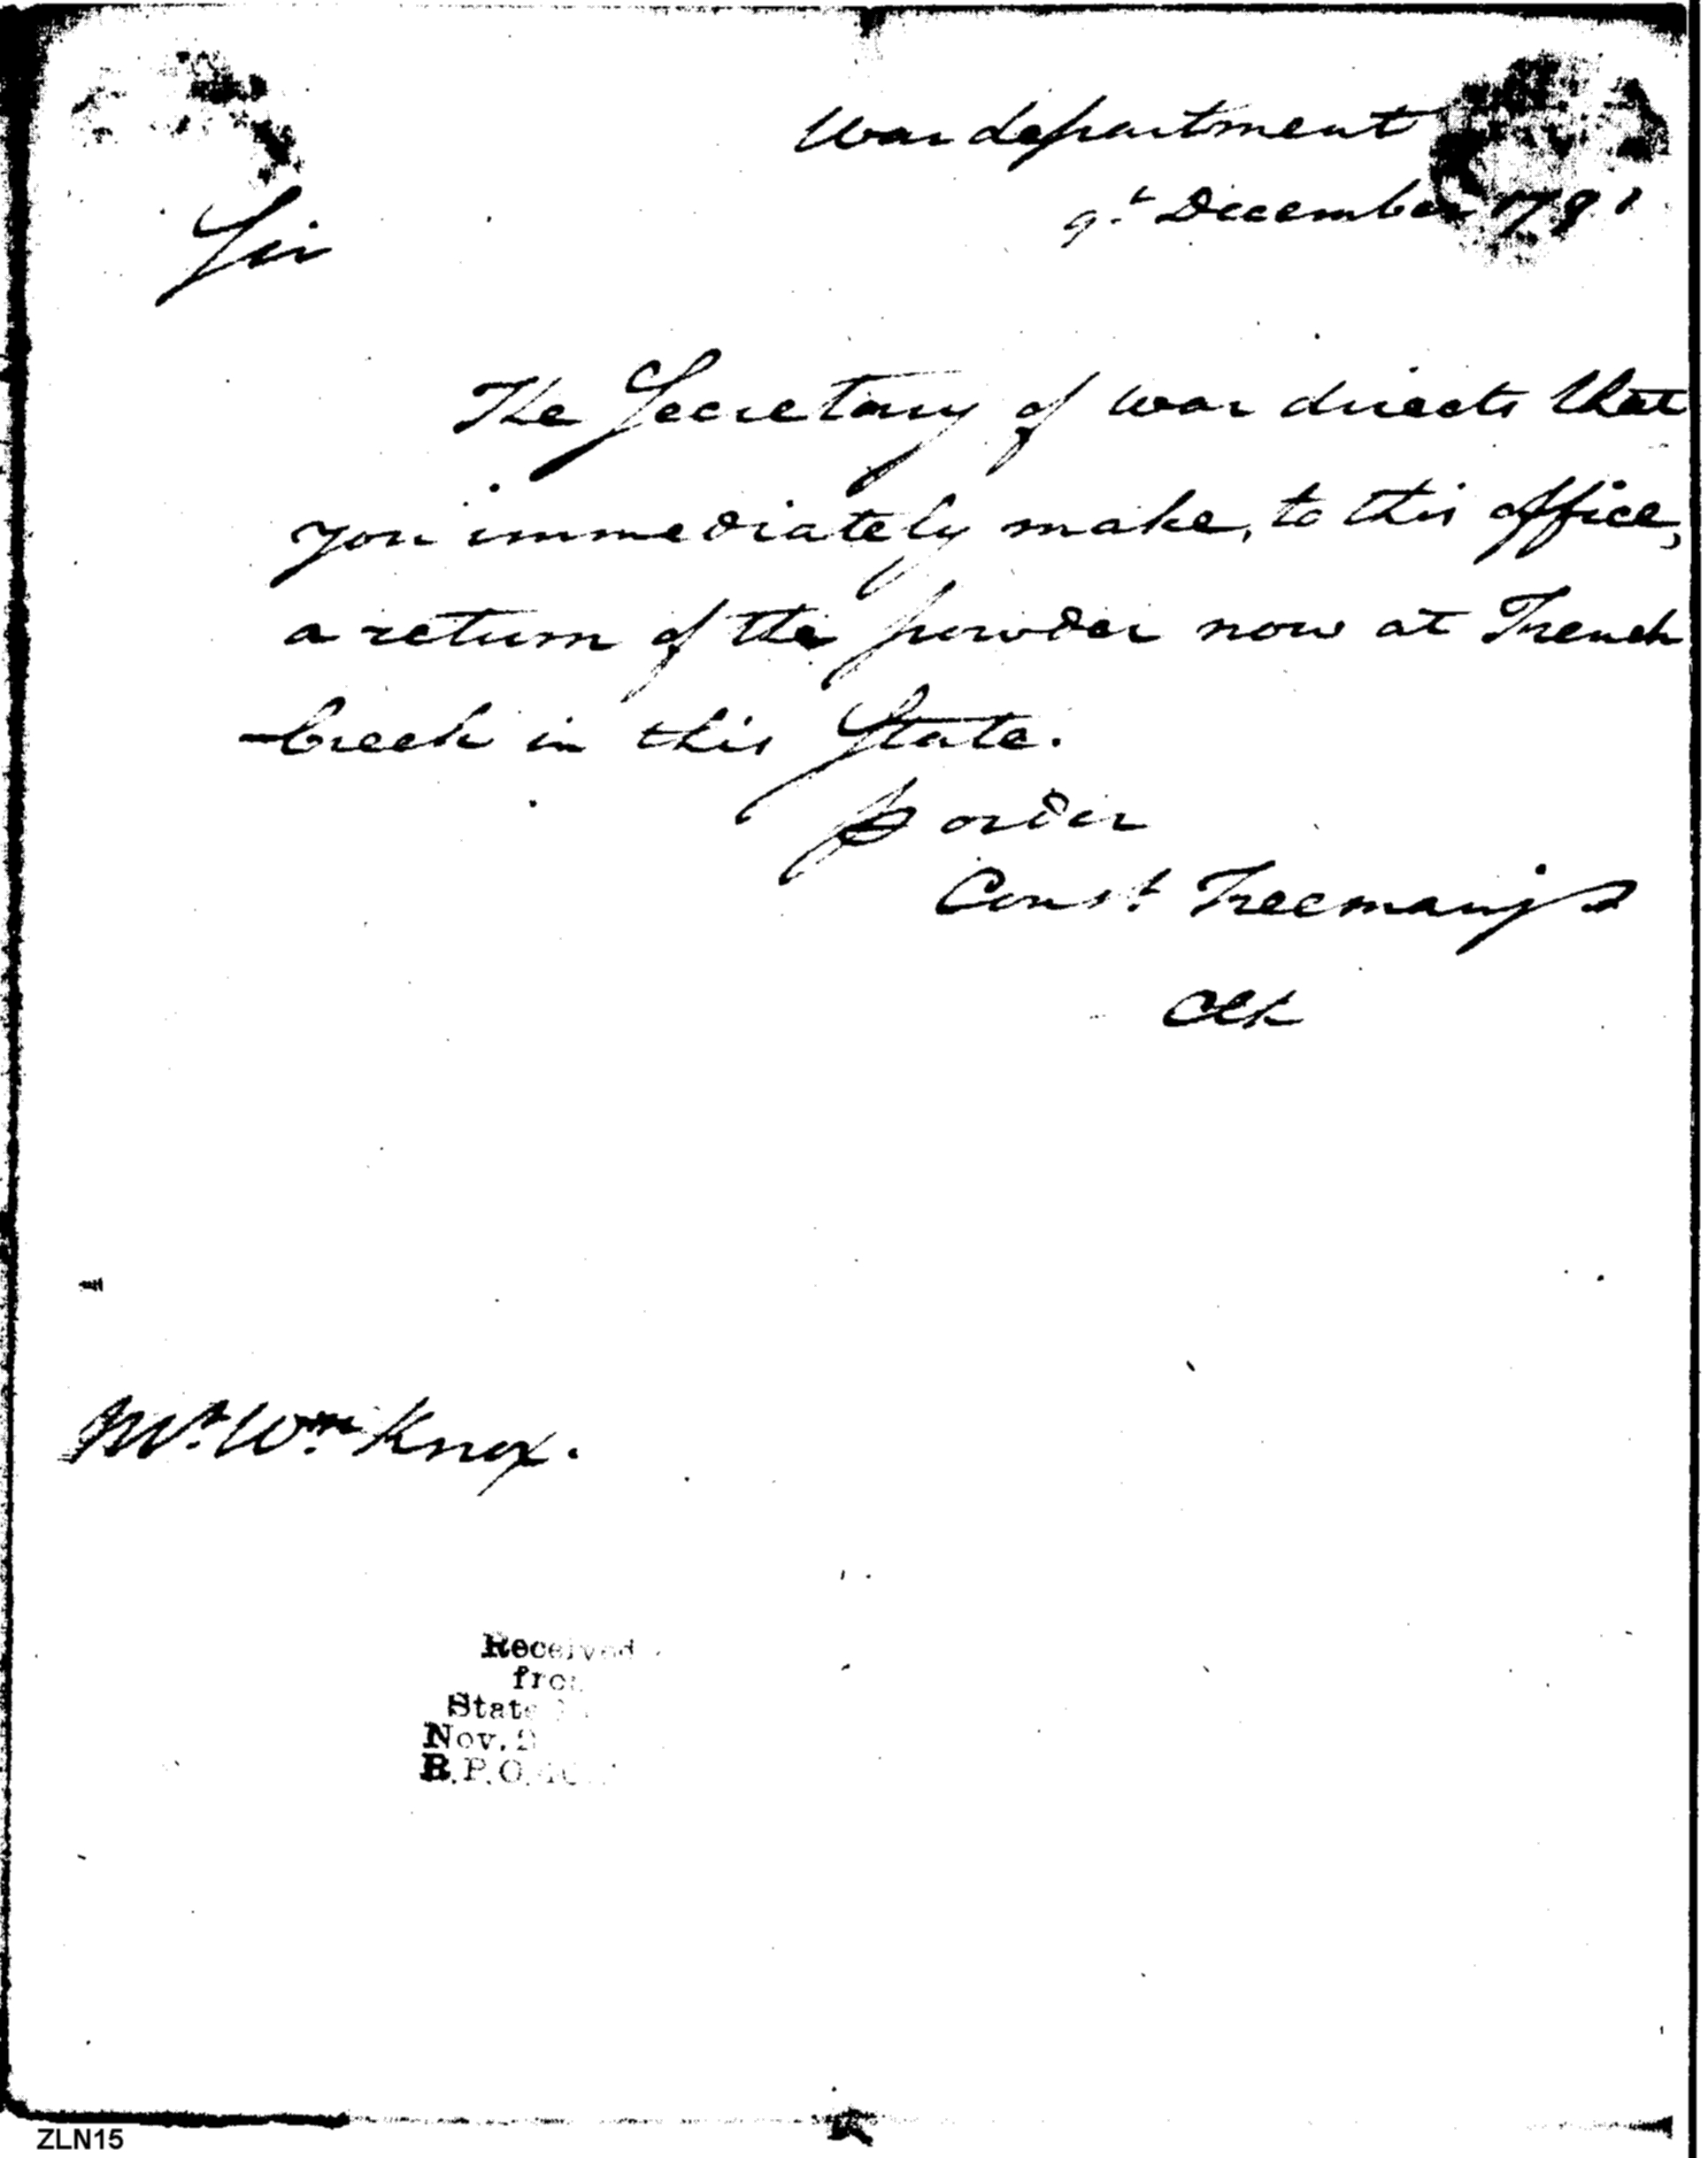 War department
9.t December 1781
Sir
The Secretary of war directs that
you immediately make, to this office,
a return of the powder now at French
creek in this State.
p order
Const Freeman js
Clk
Mr. Wm Knox.
Received
from
State
Nov. 2
B.P.O.
ZLN15